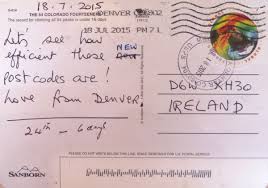 18.7.2015
THE 54 COLORADO FOURTEENERS
DENVER CO 802
18 JUL 2015 PM 7 L
Let's see how
efficient these NEW
Postcodes are!
Love from Denver
24th - 6 days
D6W XH30
IRELAND
SANBORN